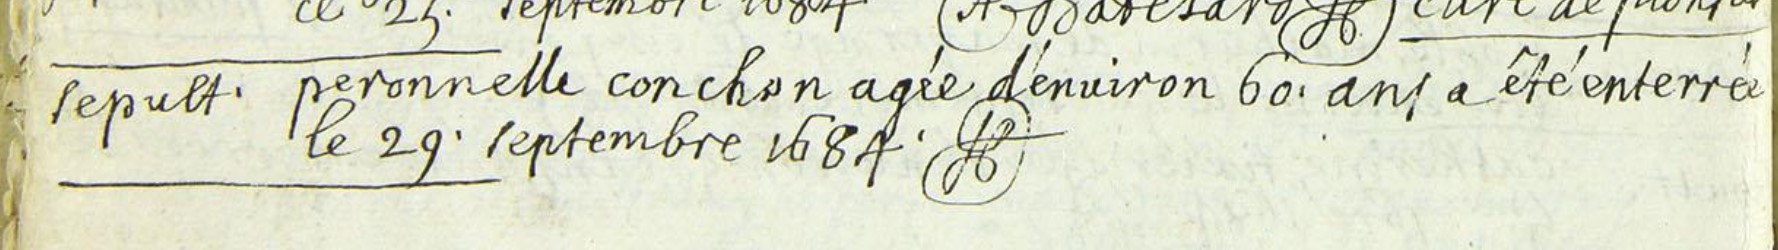 ce 25. septembre 1684 curé de
sepult. peronnelle conchon agée d'enuiron 60. ans a êté enterrée
le 29. septembre 1684.